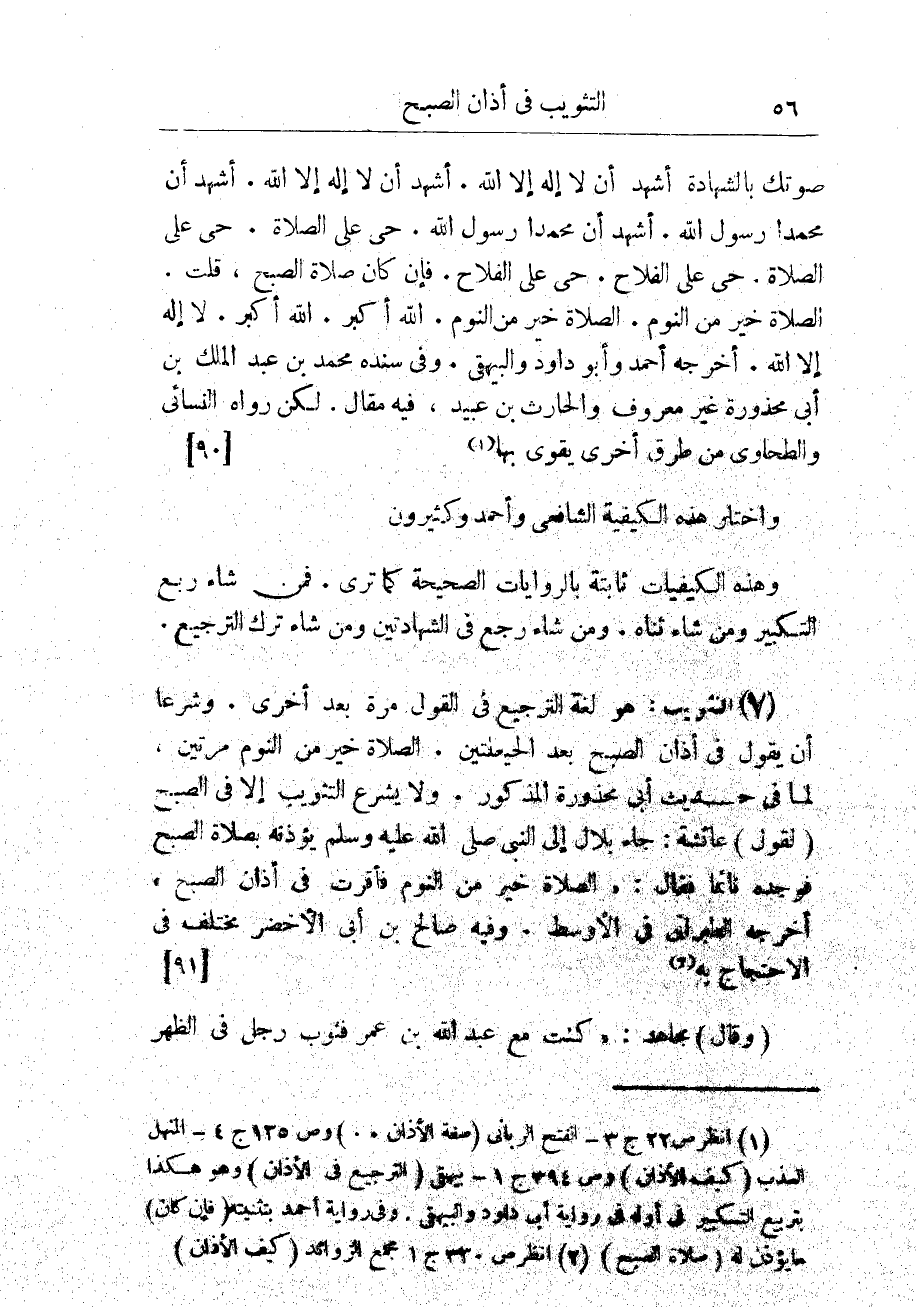 ٥٦ التثويب فى أذان الصبح
صوتك بالشهادة أشهد أن لا إله إلا الله . أشهد أن لا إله إلا الله . أشهد أن
محمدا رسول الله . أشهد أن محمدا رسول الله . حى على الصلاة . حى على
الصلاة . حى على الفلاح . حى على الفلاح . فإن كان صلاة الصبح ، قلت .
الصلاة خير من النوم . الصلاة خير من النوم . الله أكبر . الله أكبر . لا إله
إلا الله . أخرجه أحمد وأبو داود والبيهقى . وفى سنده محمد بن عبد الملك بن
أبى محذورة غير معروف والحارث بن عبيد ، فيه مقال . لكن رواه النسائى
والطحاوى من طرق أخرى يقوى بها(١) [٩٠]
واختار هذه الكيفية الشافعى وأحمد وكثيرون
وهذه الكيفيات ثابتة بالروايات الصحيحة كما ترى . فمن شاء ربع
التكبير ومن شاء ثناه . ومن شاء رجع فى الشهادتين ومن شاء ترك الترجيع .
(٧) التثويب : هو لغة الترجيع فى القول مرة بعد أخرى . وشرعا
أن يقول فى أذان الصبح بعد الحيعلتين . الصلاة خير من النوم مرتين ،
لما فى حديث أبى محذورة المذكور . ولا يشرع التثويب إلا فى الصبح
( لقول ) عائشة : جاء بلال إلى النبى صلى الله عليه وسلم يؤذنه بصلاة الصبح
فوجده نائما فقال : « الصلاة خير من النوم فأقرت فى أذان الصبح »
أخرجه الطبرانى فى الأوسط . وفيه صالح بن أبى الأخضر مختلف فى
الاحتجاج به(٢) [٩١]
( وقال ) مجاهد : « كنت مع عبد الله بن عمر فثوب رجل فى الظهر
(١) انظر ص ٢٢ ج ٣ – الفتح الربانى (صفة الأذان . . ) وص ١٣٥ ج ٤ – المنهل
العذب ( كيف الأذان ) وص ٣٩٤ ج ١ – بيهقى ( الترجيع فى الأذان ) وهو هكذا
بتربيع التكبير فى أوله فى رواية أبى داود والبيهقى . وفى رواية أحمد بتثنيته ( فإن كان )
مايؤذن له ( صلاة الصبح ) (٢) انظر ص ٣٣٠ ج ١ مجمع الزوائد ( كيف الأذان )